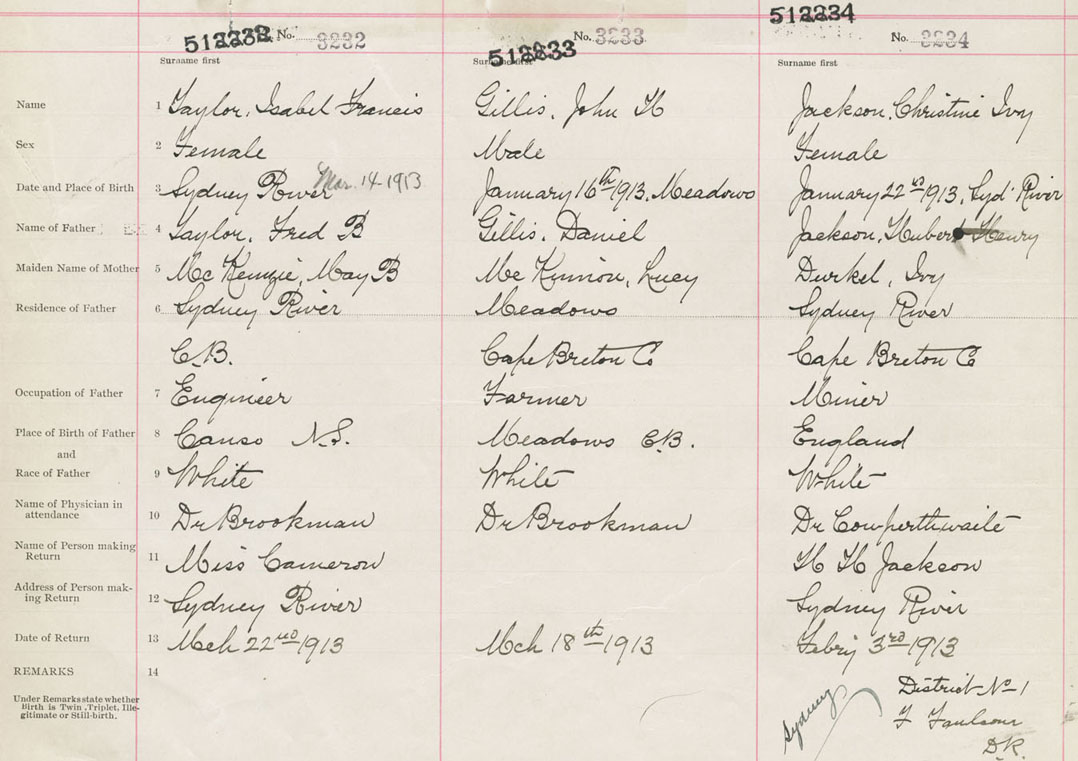 512232 No. 3232 512233 No. 3233 512234 No. 3234
Surname first Surname first Surname first
Name 1 Taylor, Isabel Francis Gillis, John H Jackson, Christine Ivy
Sex 2 Female Male Female
Date and Place of Birth 3 Sydney River Mar. 14-1913 January 16th 1913, Meadows January 22nd 1913, Syd' River
Name of Father 4 Taylor, Fred B Gillis, Daniel Jackson, Hubert Henry
Maiden Name of Mother 5 McKenzie, May B McKinnon, Lucy Durkel, Ivy
Residence of Father 6 Sydney River Meadows Sydney River
C.B. Cape Breton Co Cape Breton Co
Occupation of Father 7 Engineer Farmer Miner
Place of Birth of Father 8 Canso N.S. Meadows C.B. England
and
Race of Father 9 White White White
Name of Physician in
attendance 10 Dr Brookman Dr Brookman Dr Cowperthwaite
Name of Person making
Return 11 Miss Cameron H H Jackson
Address of Person mak-
ing Return 12 Sydney River Sydney River
Date of Return 13 Mch 22nd 1913 Mch 18th 1913 Febry 3rd 1913
REMARKS 14
Under Remarks state whether
Birth is Twin, Triplet, Ille-
gitimate or Still-birth.
Sydney
District No 1
F
D.R.